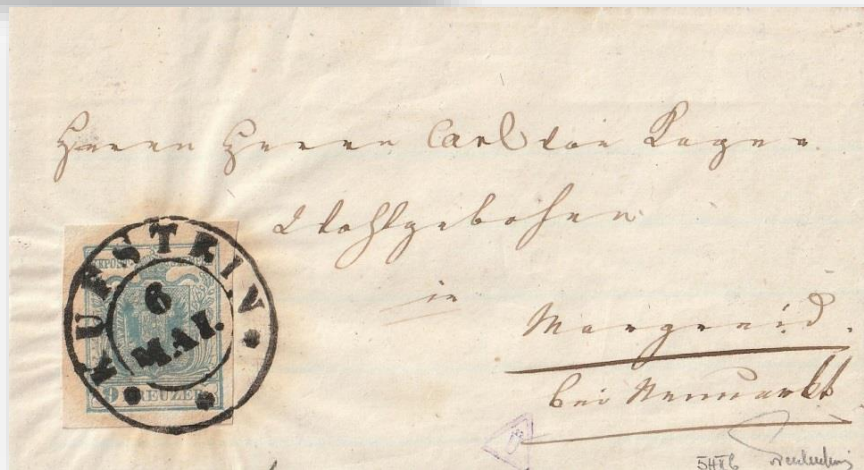 Herrn Herrn Carl von
Wohlgeboren
in
Margreid.
bei Neumarkt
KUFSTEIN
6
MAI.
9 KREUZER